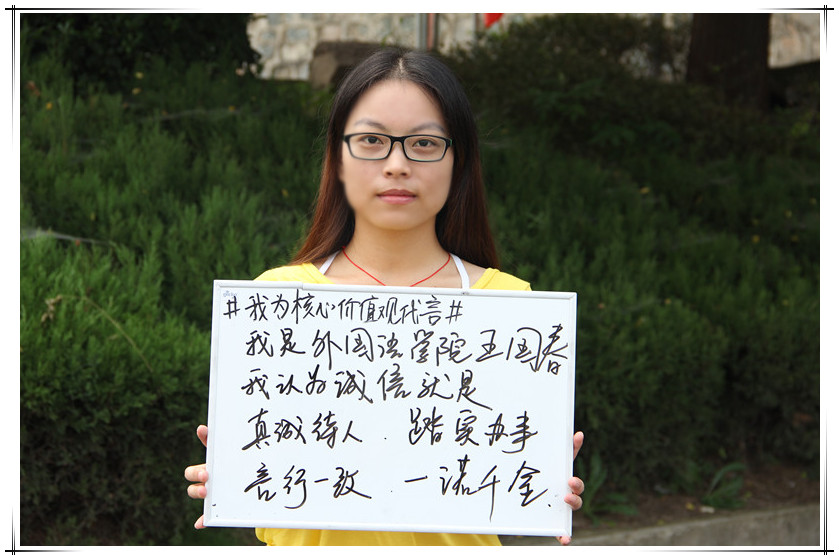 #我为核心价值观代言#
我是外国语学院王国春
我认为诚信就是
真诚待人．踏实办事
言行一致．一诺千金．